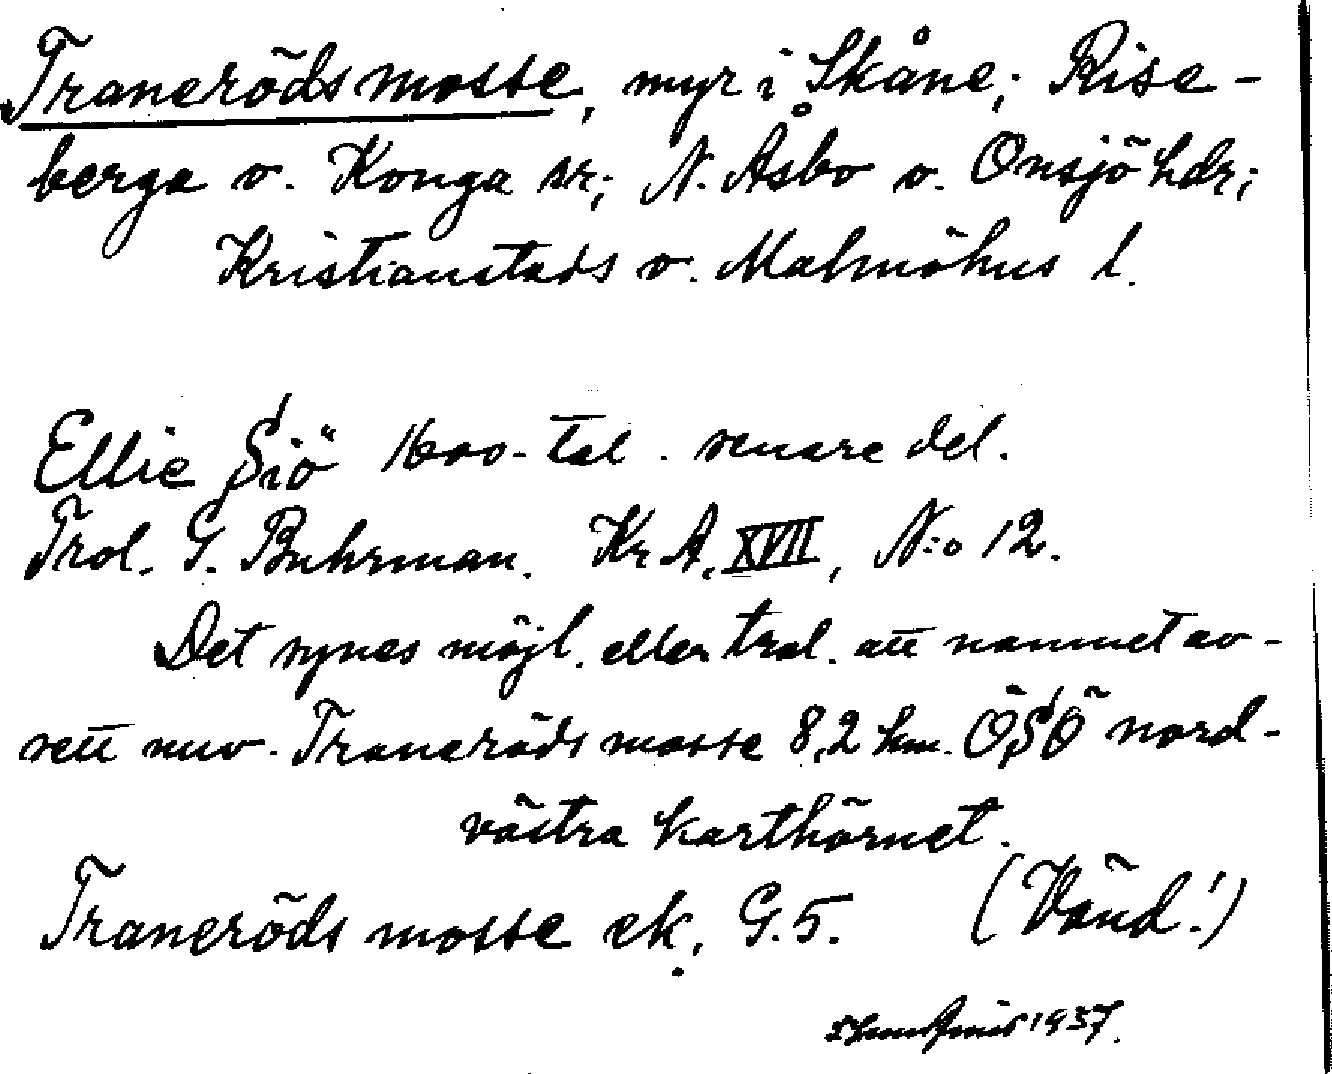 Traneröds mosse, myr i Skåne; Rise-
berga o. Konga sr; N. Åsbo o. Onsjö hdr;
Kristianstads o. Malmöhus l.
Ellie Siö 1600-tal. senare del.
Trol. G. Buhrman. Kr A, XVII, N:o 12.
Det synes möjl. eller trol. att namnet av-
sett nuv. Traneröds mosse 8,2 km. ÖSÖ nord-
västra karthörnet.
Traneröds mosse ek. G.5. (Vänd!)
1937.